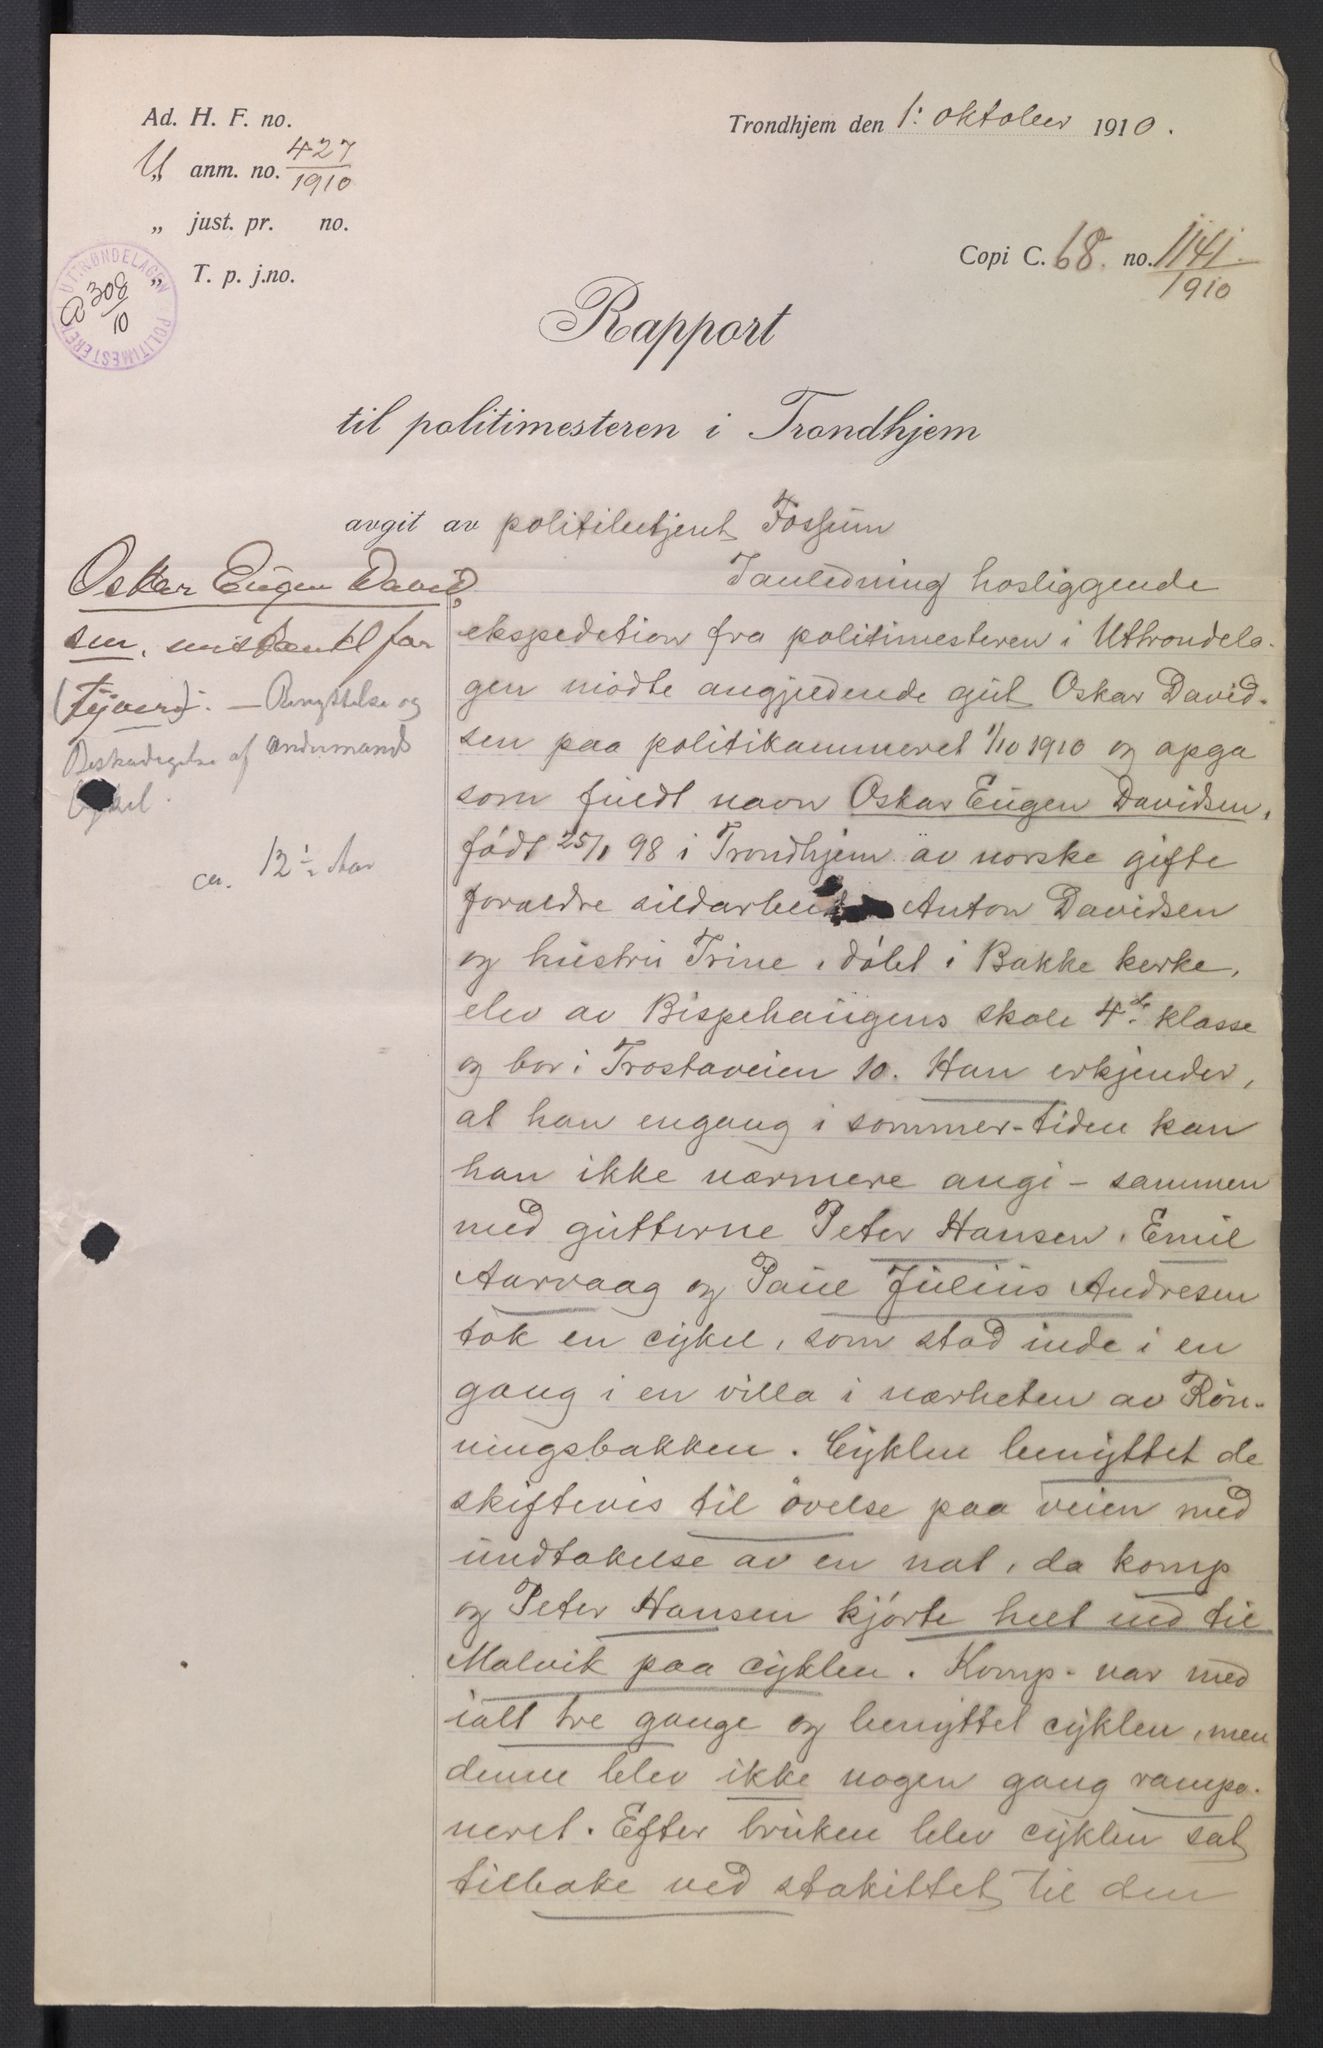 Ad. H. F. no.
U „ anm. no. 427/1910
„ just. pr. no.
„ T. p. j.no.
UTTRØNDELAGEN POLITIMESTEREN
308/10
Trondhjem den 1: oktober 1910.
Copi C. 68. no. 1141./1910
Rapport
til politimesteren i Trondhjem
avgit av politibetjent Fossum
Oskar Eugen David-
sen, mistænkt for
(tyveri). — Benyttelse og
Beskadigelse af andenmands
Cykel.
ca. 12 ½ Aar
I anledning hosliggende
ekspedition fra politimesteren i Uttrøndela-
gen mødte angjeldende gut Oskar David-
sen paa politikammeret 1/10 1910 og opga
som fuldt navn Oskar Eugen Davidsen,
født 25/1 98 i Trondhjem av norske gifte
forældre sildarbeider Anton Davidsen
og hustru Trine, døbt i Bakke kerke,
elev av Bispehaugens skole 4de klasse
og bor i Trostaveien 10. Han erkjender,
at han engang i sommer - tiden kan
han ikke nærmere angi - sammen
med gutterne Peter Hansen, Emil
Aarvaag og Paul Julius Andresen
tok en cykel, som stod inde i en
gang i en villa i nærheten av Røn-
ningsbakken. Cyklen benyttet de
skiftevis til øvelse paa veien med
undtakelse av en nat, da komp
og Peter Hansen kjørte helt ned til
Malvik paa cyklen. Komp. var med
ialt tre gange og benyttet cyklen, men
denne blev ikke nogen gang rampo-
neret. Efter bruken blev cyklen sat
tilbake ved stakittet til den